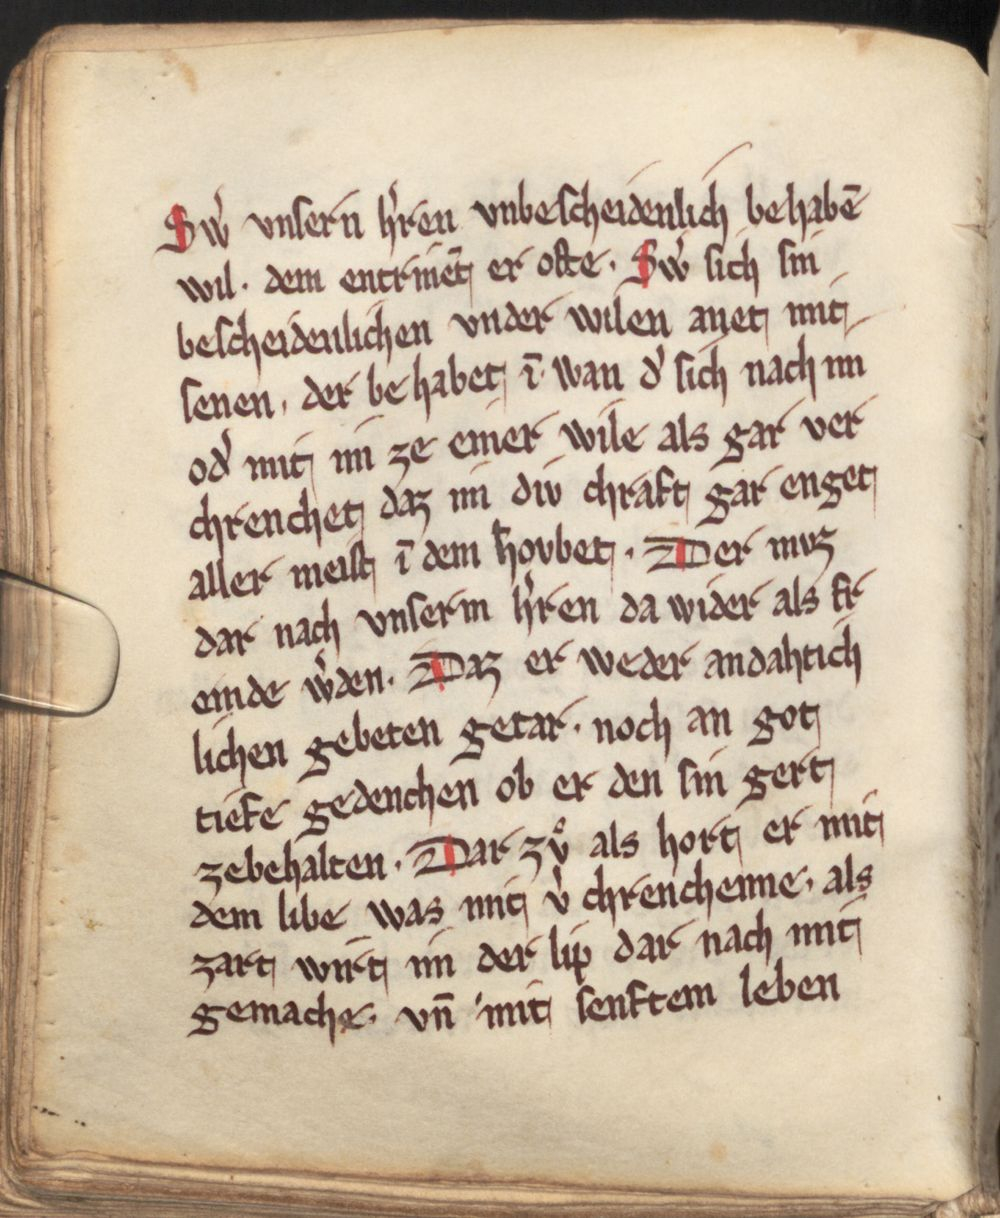 Sw͛ vnsern h͛ren vnbescheidenlich behabē
wil. dem entrinnet er ofte. Sw͛ sich sin
bescheidenlichen vnder wilen anet mit
senen. der behabet ī. wan d͛ sich nach im
od͛ mit im ze einer wile als gar ver
chrenchet daz im div chraft gar enget
aller meist ī dem hovbet. Der mvz
dar nach vnserm h͛ren da wider als fr
emde w͛den. Daz er weder andahtich
lichen gebeten getar. noch an got
tiefe gedenchen ob er den sin gert
zebehalten. Dar zvͦ als hort er mit
dem libe was mit v͛chrenchenne. als
zart wirt im der lip dar nach mit
gemache. vn̄ mit senftem leben